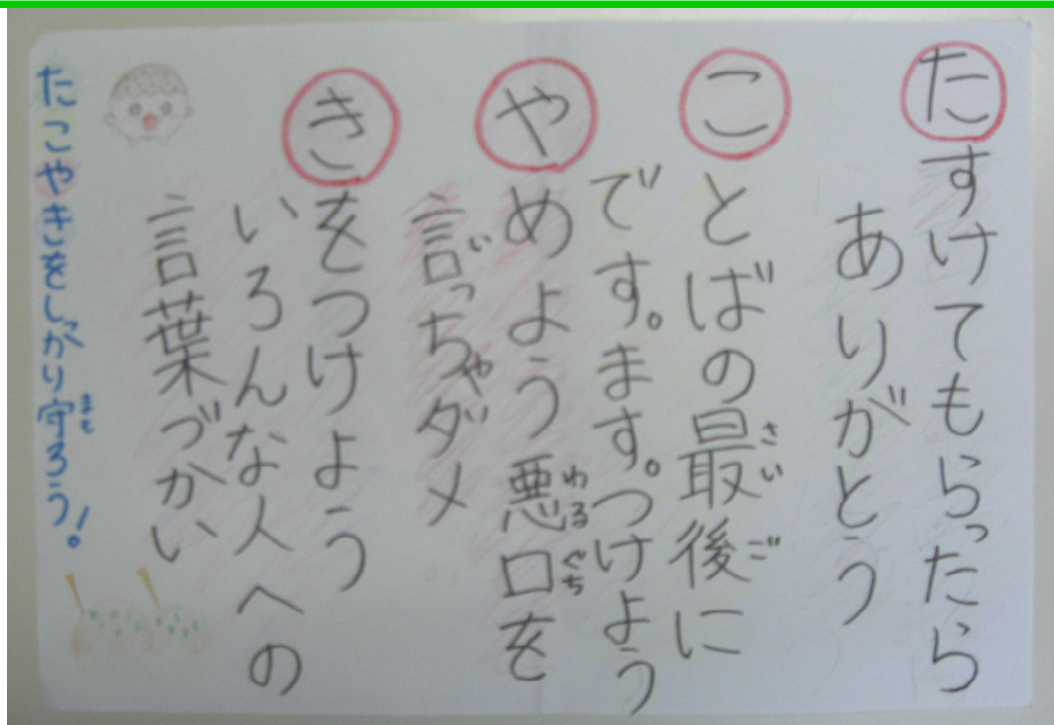 たすけてもらったら
ありがとう
ことばの最後に
です。ます。つけよう
やめよう悪口を
言っちゃダメ
きをつけよう
いろんな人への
言葉づかい
たこやきをしっかり守ろう！